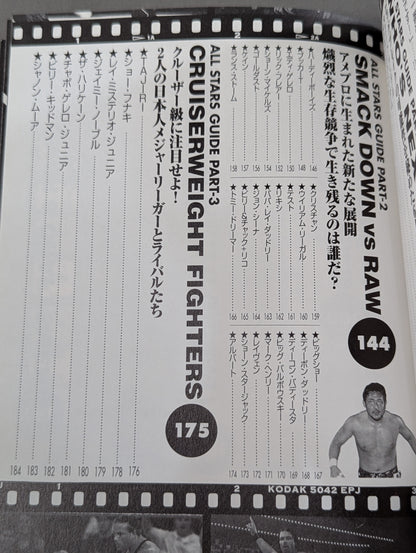 ALL STARS GUIDE PART-2
SMACK DOWN vs RAW
アメプロに生まれた新たな展開
熾烈な生存競争で生き残るのは誰だ?
144
★ハーディーボーイズ 146
★ブッカーT 148
★エディ・ゲレロ 149
★リック・フレアー 150
★ショーン・マイケルズ 152
★ゴールダスト 154
★ケイン 156
★ランス・ストーム 157
158
★クリスチャン 159
★ウイリアム・リーガル 160
★テスト 161
★リキシ 162
★ババ・レイ・ダッドリー 163
★ジョン・シーナ 164
★ビリー&チャック・リコ 165
★トミー・ドリーマー 166
★ビッグショー 167
★ディーボン・ダッドリー 168
★ディーコン・バティースタ 169
★ビッグ・バルボウスキー 170
★マーク・ヘンリー 171
★レイヴェン 172
★ショーン・スタージャック 173
★アルバート 174
ALL STARS GUIDE PART-3
CRUISERWEIGHT FIGHTERS
クルーザー級に注目せよ!
2人の日本人メジャーリーガーとライバルたち
175
★TAJIRI 176
★ショー・フナキ 178
★レイ・ミステリオ・ジュニア 179
★ジェイミー・ノーブル 180
★ザ・ハリケーン 181
★チャボ・ゲレロ・ジュニア 182
★ビリー・キッドマン 183
★シャノン・ムーア 184
KODAK 5042 EPJ